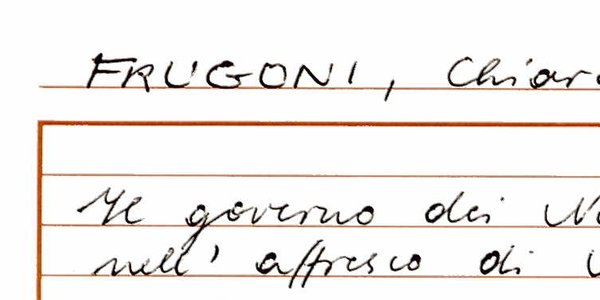 FRUGONI, Chiara
Il governo dei No
nell' affresco di